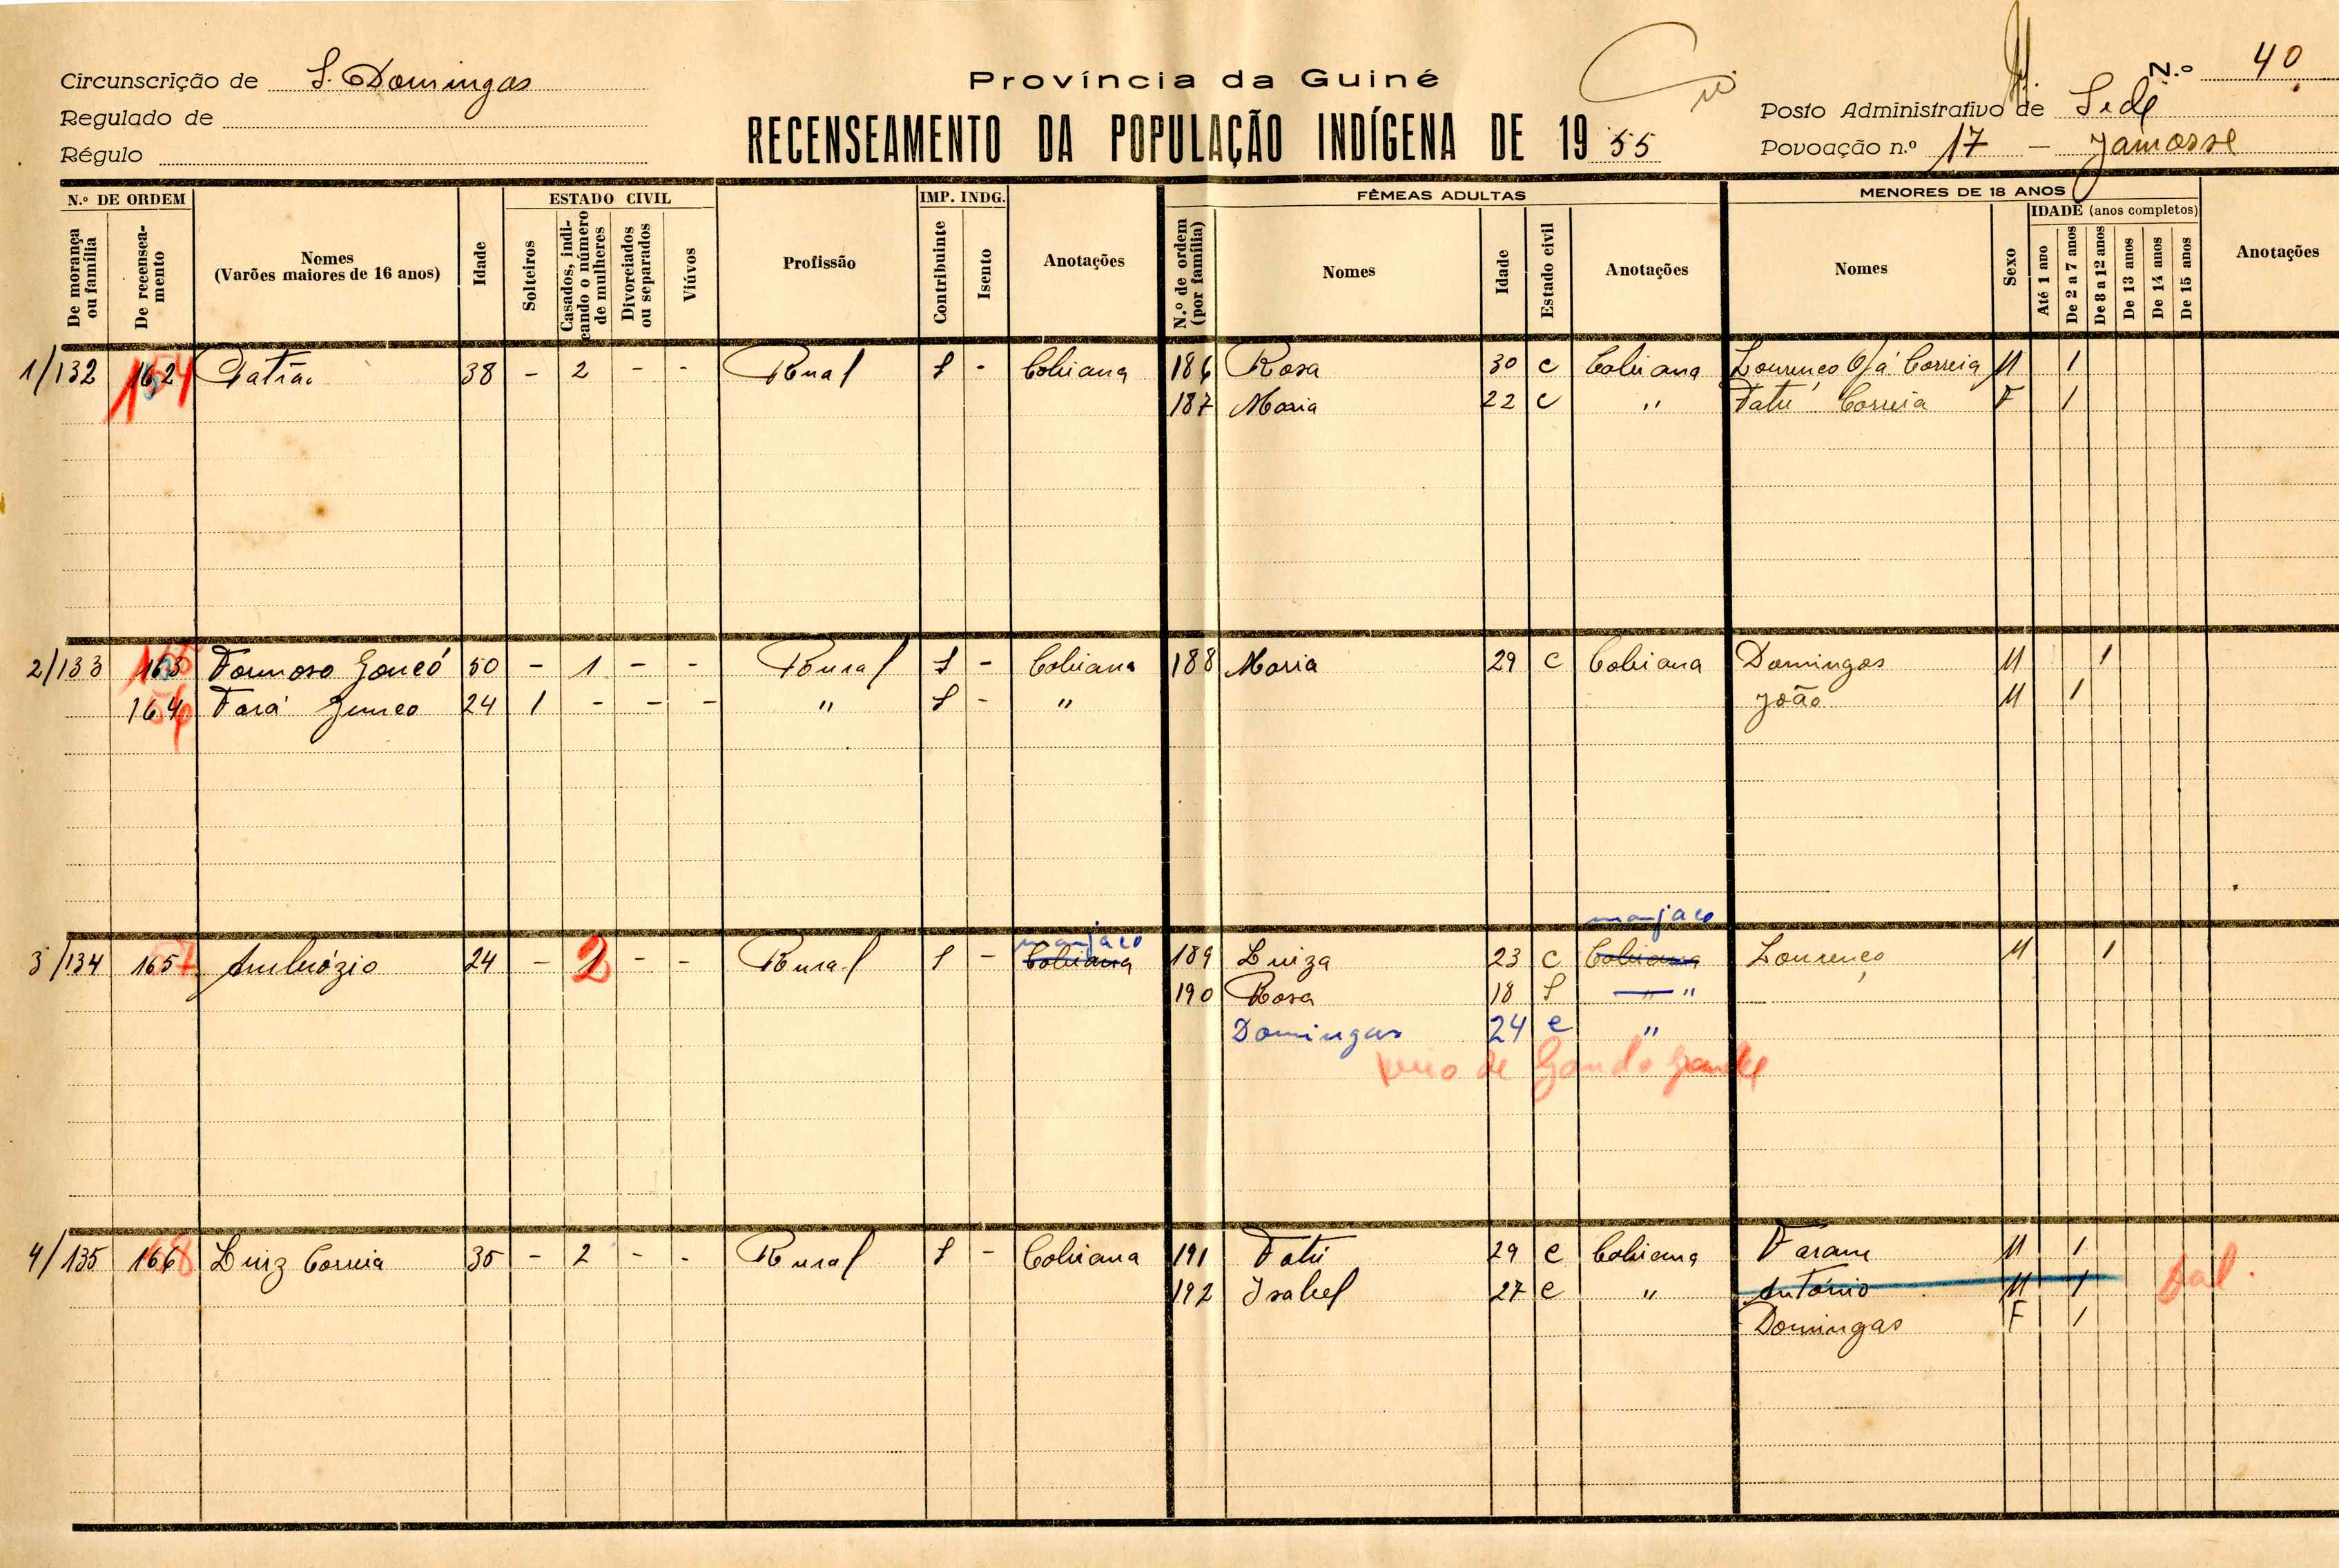 Circunscrição de S. Domingos
Regulado de
Régulo
Província da Guiné
RECENSEAMENTO DA POPULAÇÃO INDÍGENA DE 1955
N.º 40
Posto Administrativo de Sede
Povoação n.º 17 - Jamosse
N.º DE ORDEM
De morança ou família
De recenseamento
Nomes
(Varões maiores de 16 anos)
Idade
ESTADO CIVIL
Solteiros
Casados, indicando o número de mulheres
Divorciados ou separados
Viúvos
Profissão
IMP. INDG.
Contribuinte
Isento
Anotações
FÊMEAS ADULTAS
N.º de ordem (por família)
Nomes
Idade
Estado civil
Anotações
MENORES DE 18 ANOS
Nomes
Sexo
IDADE (anos completos)
Até 1 ano
De 2 a 7 anos
De 8 a 12 anos
De 13 anos
De 14 anos
De 15 anos
Anotações
1/132 162 Patrão 38 - 2 - - Rural S - Cobiana 186 Rosa 30 C Cobiana Lourenço Correia M 1
187 Maria 22 C " Fatú Correia F 1
2/133 163 Formoso Goncó 50 - 1 - - Rural S - Cobiana 188 Maria 29 C Cobiana Domingos M 1
164 Fará 24 1 - - - " S - " João M 1
manjaco manjaco
3/134 165 Ambrózio 24 - 2 - - Rural S - Cobiana 189 Luiza 23 C Cobiana Lourenço M 1
190 Rosa 18 S "
Domingas 24 C "
veio de grande
4/135 166 Luiz Correia 35 - 2 - - Rural S - Cobiana 191 Fatú 29 C Cobiana Faram M 1
192 Isabel 27 C " António M 1 fal.
Domingas F 1